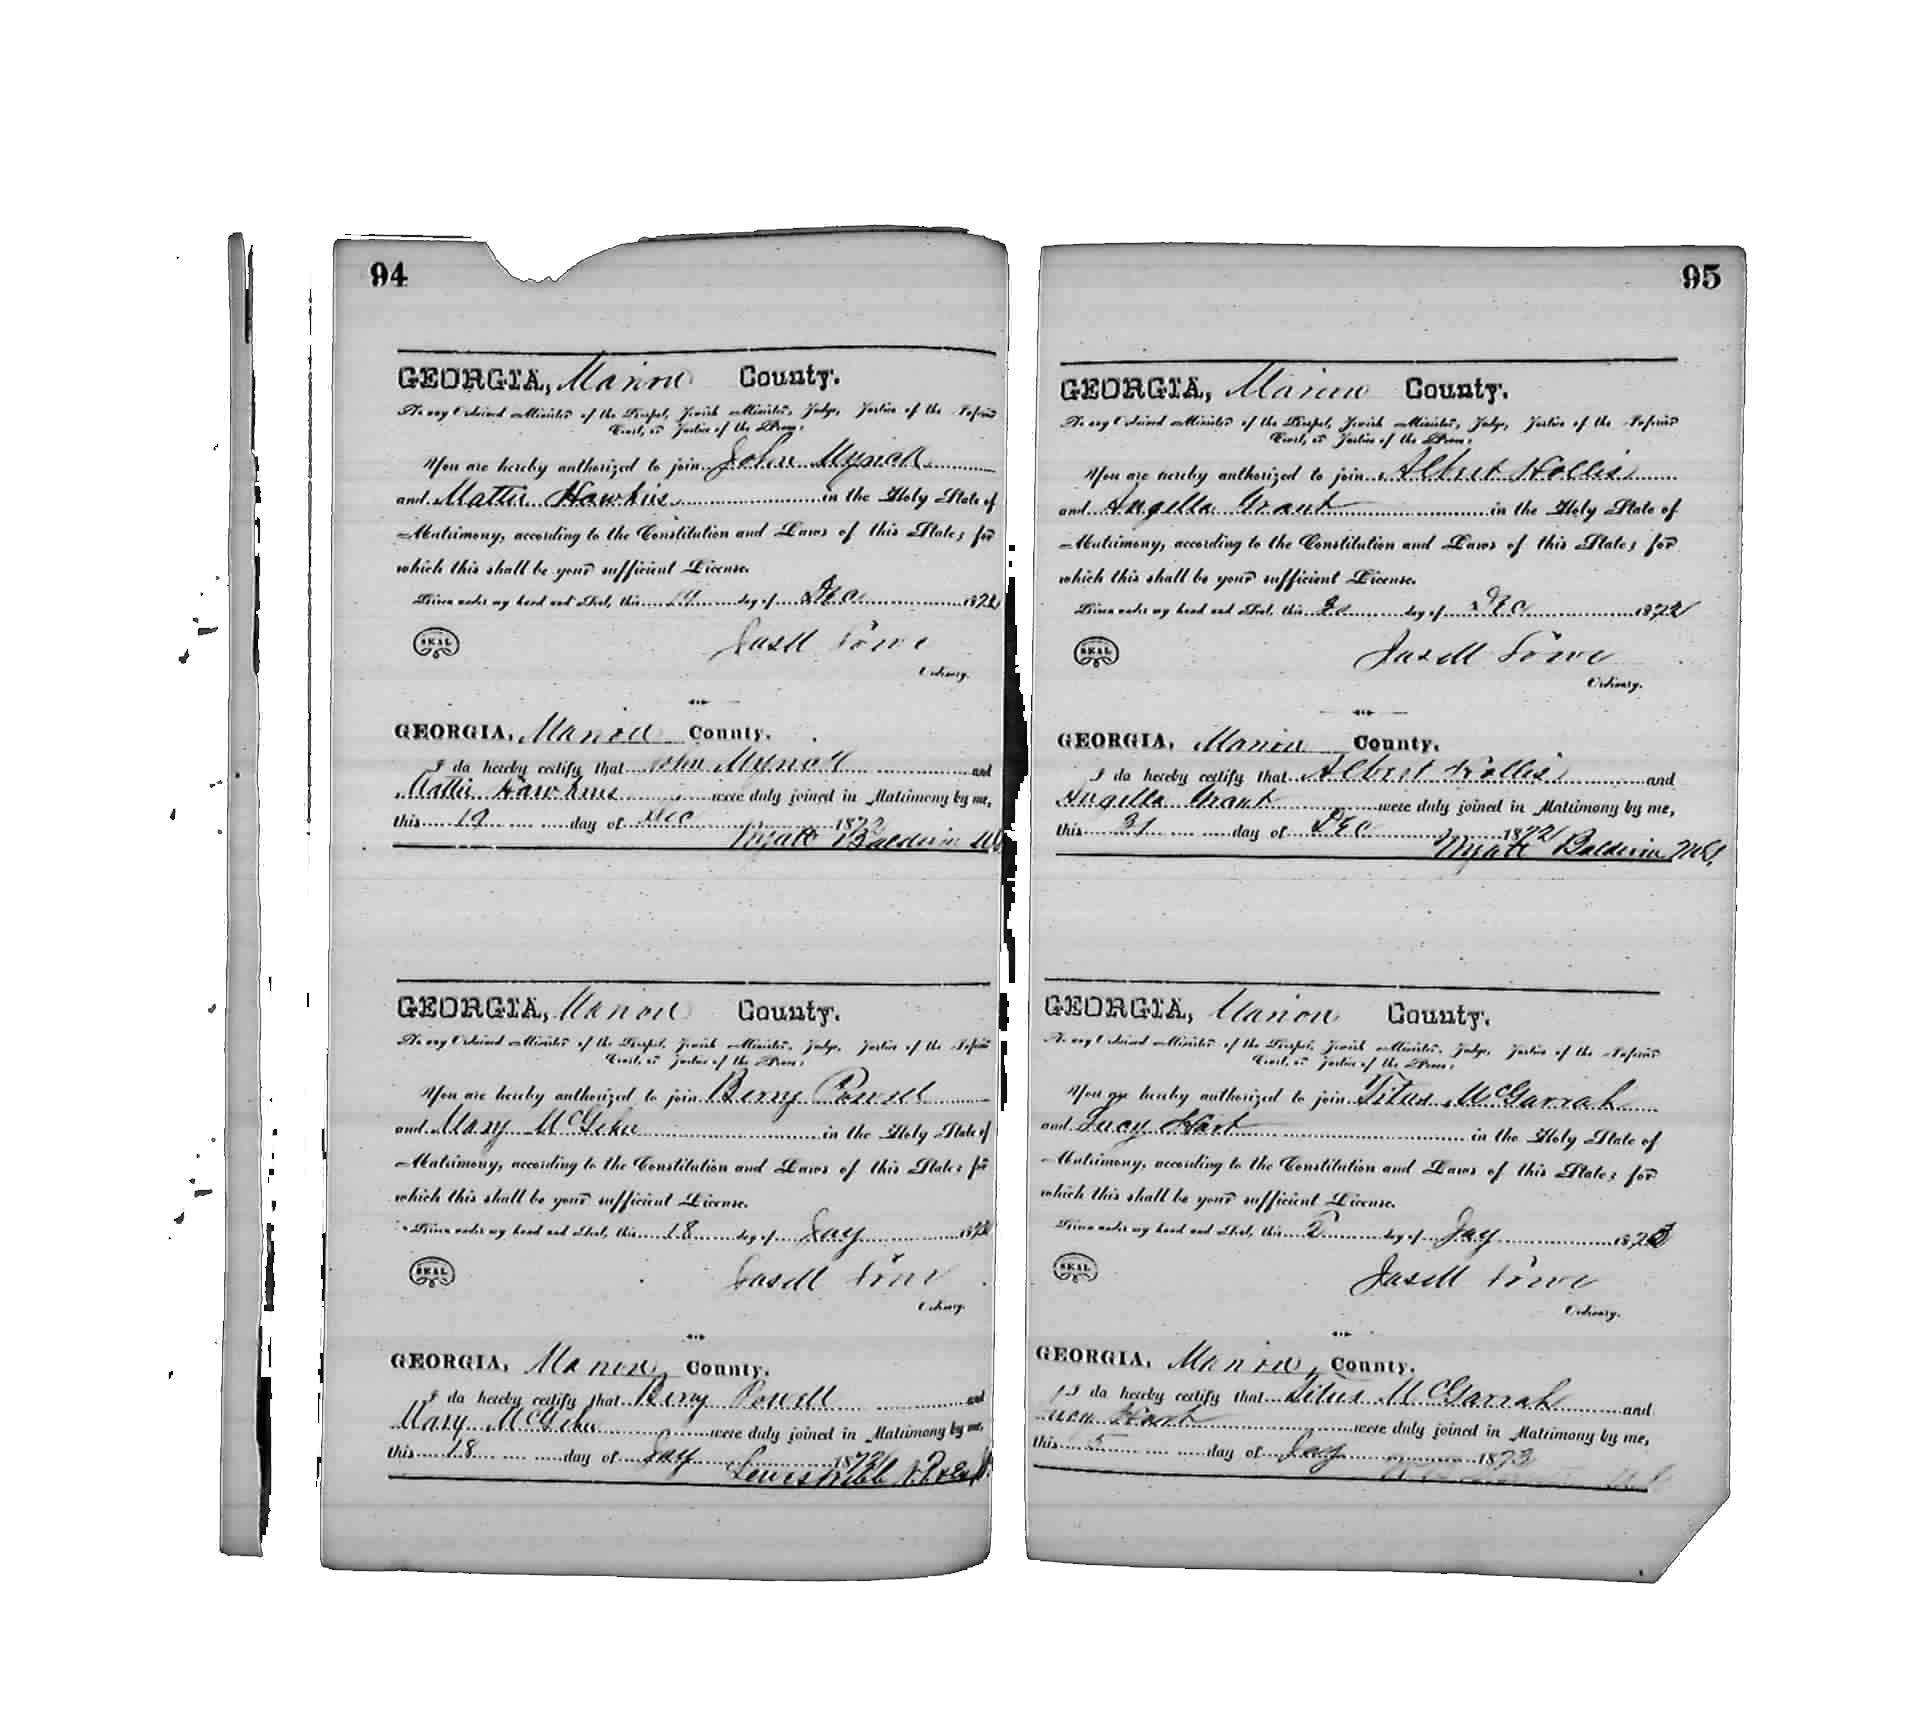 94
GEORGIA, Marion County.
To any Ordained Minister of the Gospel, Jewish Minister, Judge, Justice of the Inferior
Court, or Justice of the Peace:
You are hereby authorized to join John
and Mattie Hawkins in the Holy State of
Matrimony, according to the Constitution and Laws of this State; for
which this shall be your sufficient License.
Given under my hand and Seal, this 19 day of Dec 1872
SEAL
Jas M Lowe
Ordinary.
GEORGIA, Marion County.
I do hereby certify that John and
Mattie Hawkins were duly joined in Matrimony by me,
this 19 day of Dec 1872
Wyatt Baldwin
GEORGIA, Marion County.
To any Ordained Minister of the Gospel, Jewish Minister, Judge, Justice of the Inferior
Court, or Justice of the Peace:
You are hereby authorized to join Berry Powell
and Mary McGehee in the Holy State of
Matrimony, according to the Constitution and Laws of this State; for
which this shall be your sufficient License.
Given under my hand and Seal, this 18 day of Jay 187
SEAL
Jas M Lowe
Ordinary.
GEORGIA, Marion County.
I do hereby certify that Berry Powell and
Mary McGehee were duly joined in Matrimony by me,
this 18 day of Jay 187
Lewis Webb
95
GEORGIA, Marion County.
To any Ordained Minister of the Gospel, Jewish Minister, Judge, Justice of the Inferior
Court, or Justice of the Peace:
You are hereby authorized to join Albert Hollis
and Angella Grant in the Holy State of
Matrimony, according to the Constitution and Laws of this State; for
which this shall be your sufficient License.
Given under my hand and Seal, this 30 day of Dec 1872
SEAL
Jas M Lowe
Ordinary.
GEORGIA, Marion County.
I do hereby certify that Albert Hollis and
Angella Grant were duly joined in Matrimony by me,
this 31 day of Dec 1872
Wyatt Baldwin MG
GEORGIA, Marion County.
To any Ordained Minister of the Gospel, Jewish Minister, Judge, Justice of the Inferior
Court, or Justice of the Peace:
You are hereby authorized to join Titus McGarrah
and Lucy Hart in the Holy State of
Matrimony, according to the Constitution and Laws of this State; for
which this shall be your sufficient License.
Given under my hand and Seal, this day of Jay 1873
SEAL
Jas M Lowe
Ordinary.
GEORGIA, Marion County.
I do hereby certify that Titus McGarrah and
Lucy Hart were duly joined in Matrimony by me,
this 5 day of Jay 1873